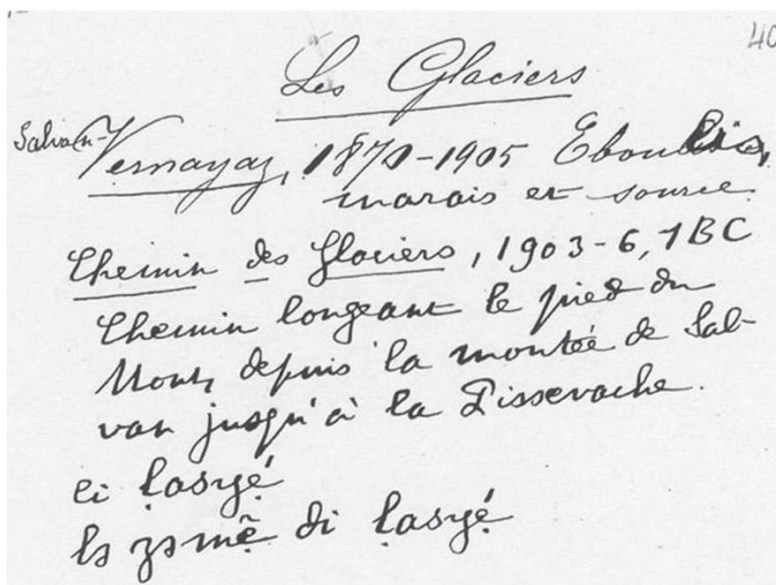 40
Les Glaciers
Salvan-
Vernayaz, 1870-1905 Eboulis,
marais et source.
Chemin des Glaciers, 1903-6, 1BC
Chemin longeant le pied du
Mont, depuis la montée de Sal-
van jusqu'à la Pissevache.
li lasyé
lə zəmẽ di lasyé